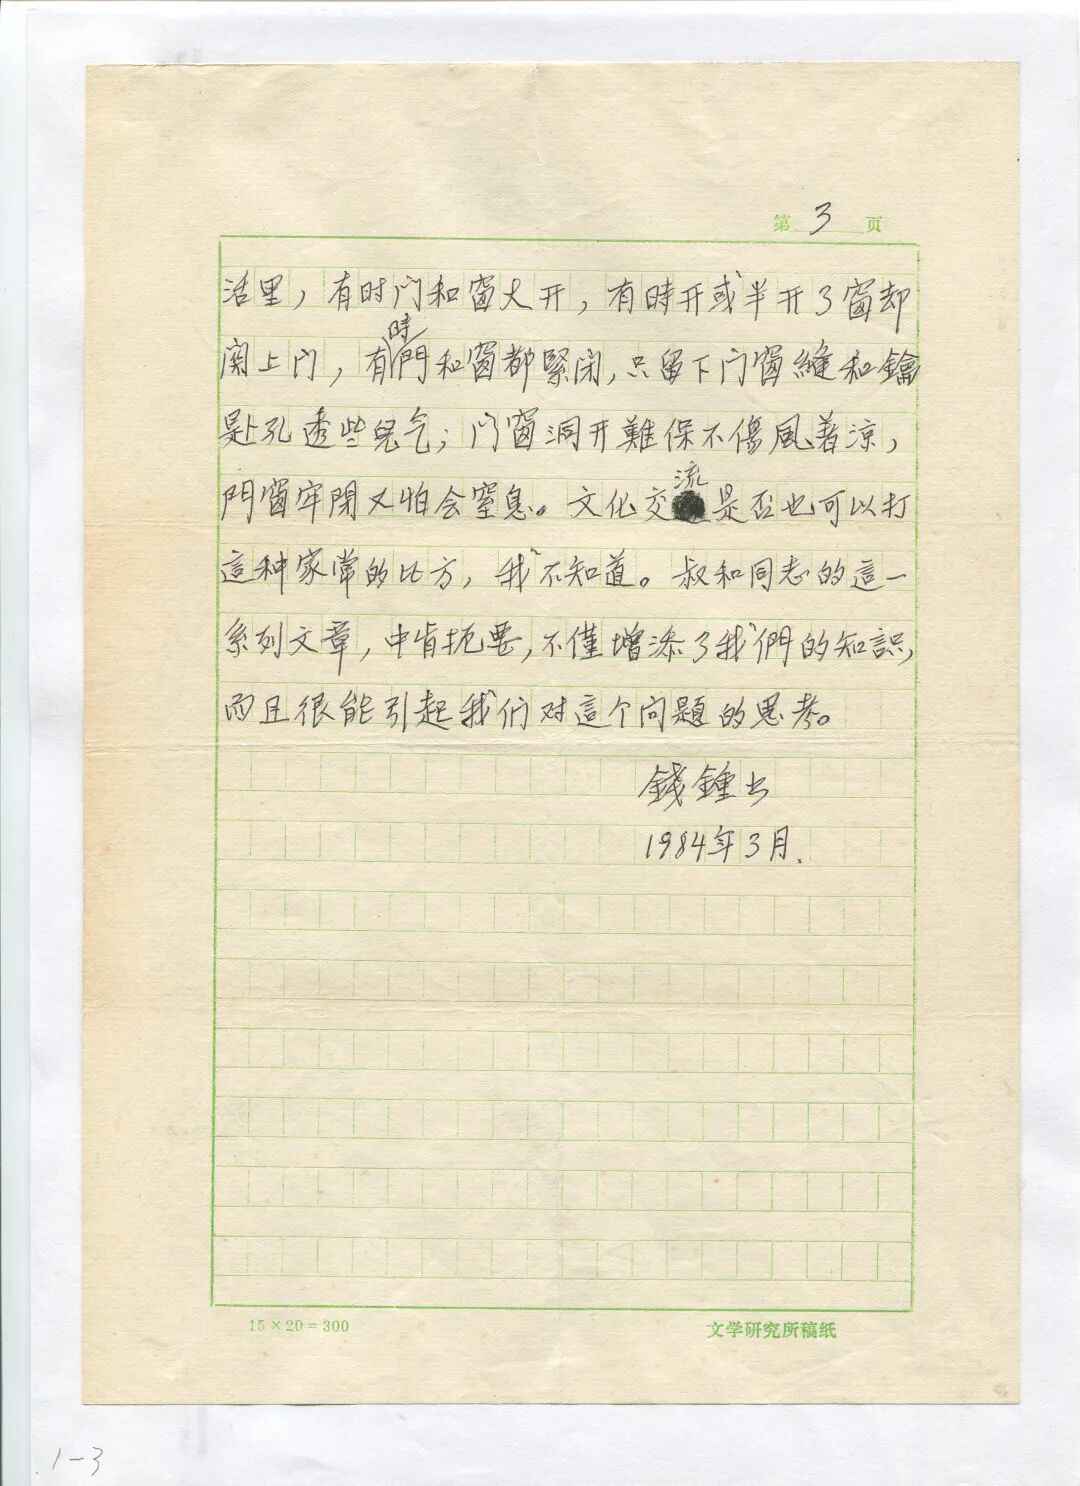 第 3 页
活里，有时门和窗大开，有時开或半开了窗却
関上门，有時門和窗都緊闭，只留下门窗縫和鑰
匙孔透些兒气；门窗洞开難保不傷風着涼，
門窗牢閉又怕会窒息。文化交流是否也可以打
這种家常的比方，我不知道。叔和同志的這一
系列文章，中肯扼要，不僅增添了我們的知識，
而且很能引起我们对這个问题的思考。
錢鍾书
1984年3月.
15×20=300 文学研究所稿纸
1-3